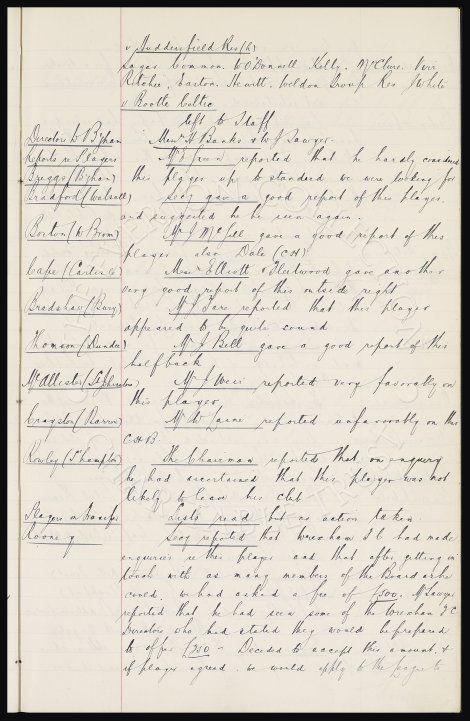 v Huddersfield Res (h)
Sagar Common. W O'Donnell Kelly. McClure. Virr
Ritchie, Easton. Hewitt. Weldon Troup Reg. J White
v Bootle Celtic
left to Staff
Directors to B'ham Messrs H Banks & W J Sawyer.
Reports re Players Mr J Green reported that he hardly considered
Briggs (B'ham) this player up to standard we were looking for
Bradford (Walsall) Secy gave a good report of this player.
and suggested he be seen again.
Boston (W Brom) Mr J McGill gave a good report of this
player also Dale (C H)
Cape (Carlisle) Messrs Elliott & Fleetwood gave another
very good report of this outside right
Bradshaw (Bury) Mr J Tare reported that this player
appeared to be quite sound
Thomson (Dundee) Mr J Bell gave a good report of this
half back
McAllister (St Johnston) Mr J Weir reported very favorably on
this player
Crayston (Barrow) Mr W Laine reported unfavorably on this
C H B
Rowley (S'hampton) The Chairman reported that on enquiry
he had ascertained that this player was not
likely to leave his club
Players on Transfer Lists read but no action taken.
Rooney Secy reported that Wrexham F C had made
enquiries re this player and that after getting in
touch with as many members of the Board as he
could. we had asked a fee of £500. Mr Sawyer
reported that he had seen some of the Wrexham F C
Directors who had stated they would be prepared
to offer £250 - Decided to accept this amount, &
if player agreed. we would apply to the League to